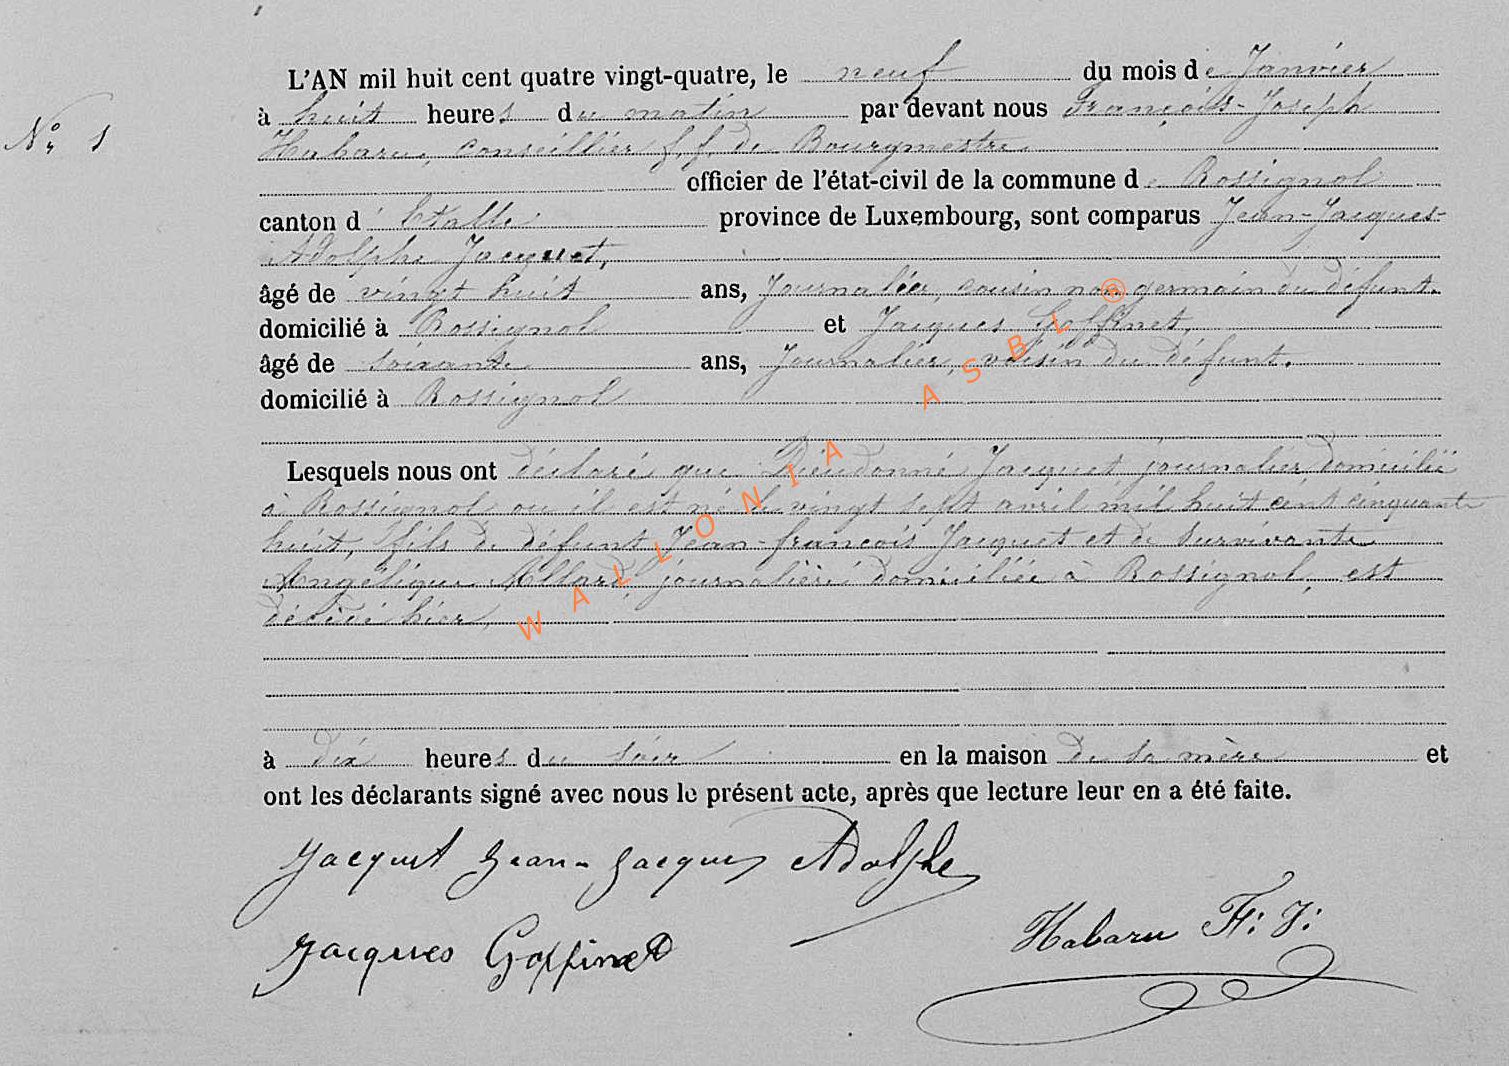 L'AN mil huit cent quatre vingt-quatre, le neuf du mois de Janvier
Nº 1
à huit heures du matin par devant nous François-Joseph
Habaru, conseillier f.f. de Bourgmestre
officier de l'état-civil de la commune de Rossignol
canton d'Etalle province de Luxembourg, sont comparus Jean-Jacques-
Adolphe Jacquet,
âgé de vingt huit ans, Journalier, cousin non germain du défunt.
domicilié à Rossignol et Jacques Goffinet,
âgé de soixante ans, Journalier, voisin du défunt.
domicilié à Rossignol
Lesquels nous ont déclaré que Dieudonné Jacquet journalier domicilié
à Rossignol ou il est né le vingt sept avril mil huit cent cinquante
huit, fils de défunt Jean-françois Jacquet et de survivante
Angélique Allard, journalière domiciliée à Rossignol, est
décédé hier,
à dix heures du soir en la maison de sa mère et
ont les déclarants signé avec nous le présent acte, après que lecture leur en a été faite.
Jacquet Jean-Jacques Adolphe
Jacques Goffinet
Habaru F: J:
WALLONIA ASBL ®